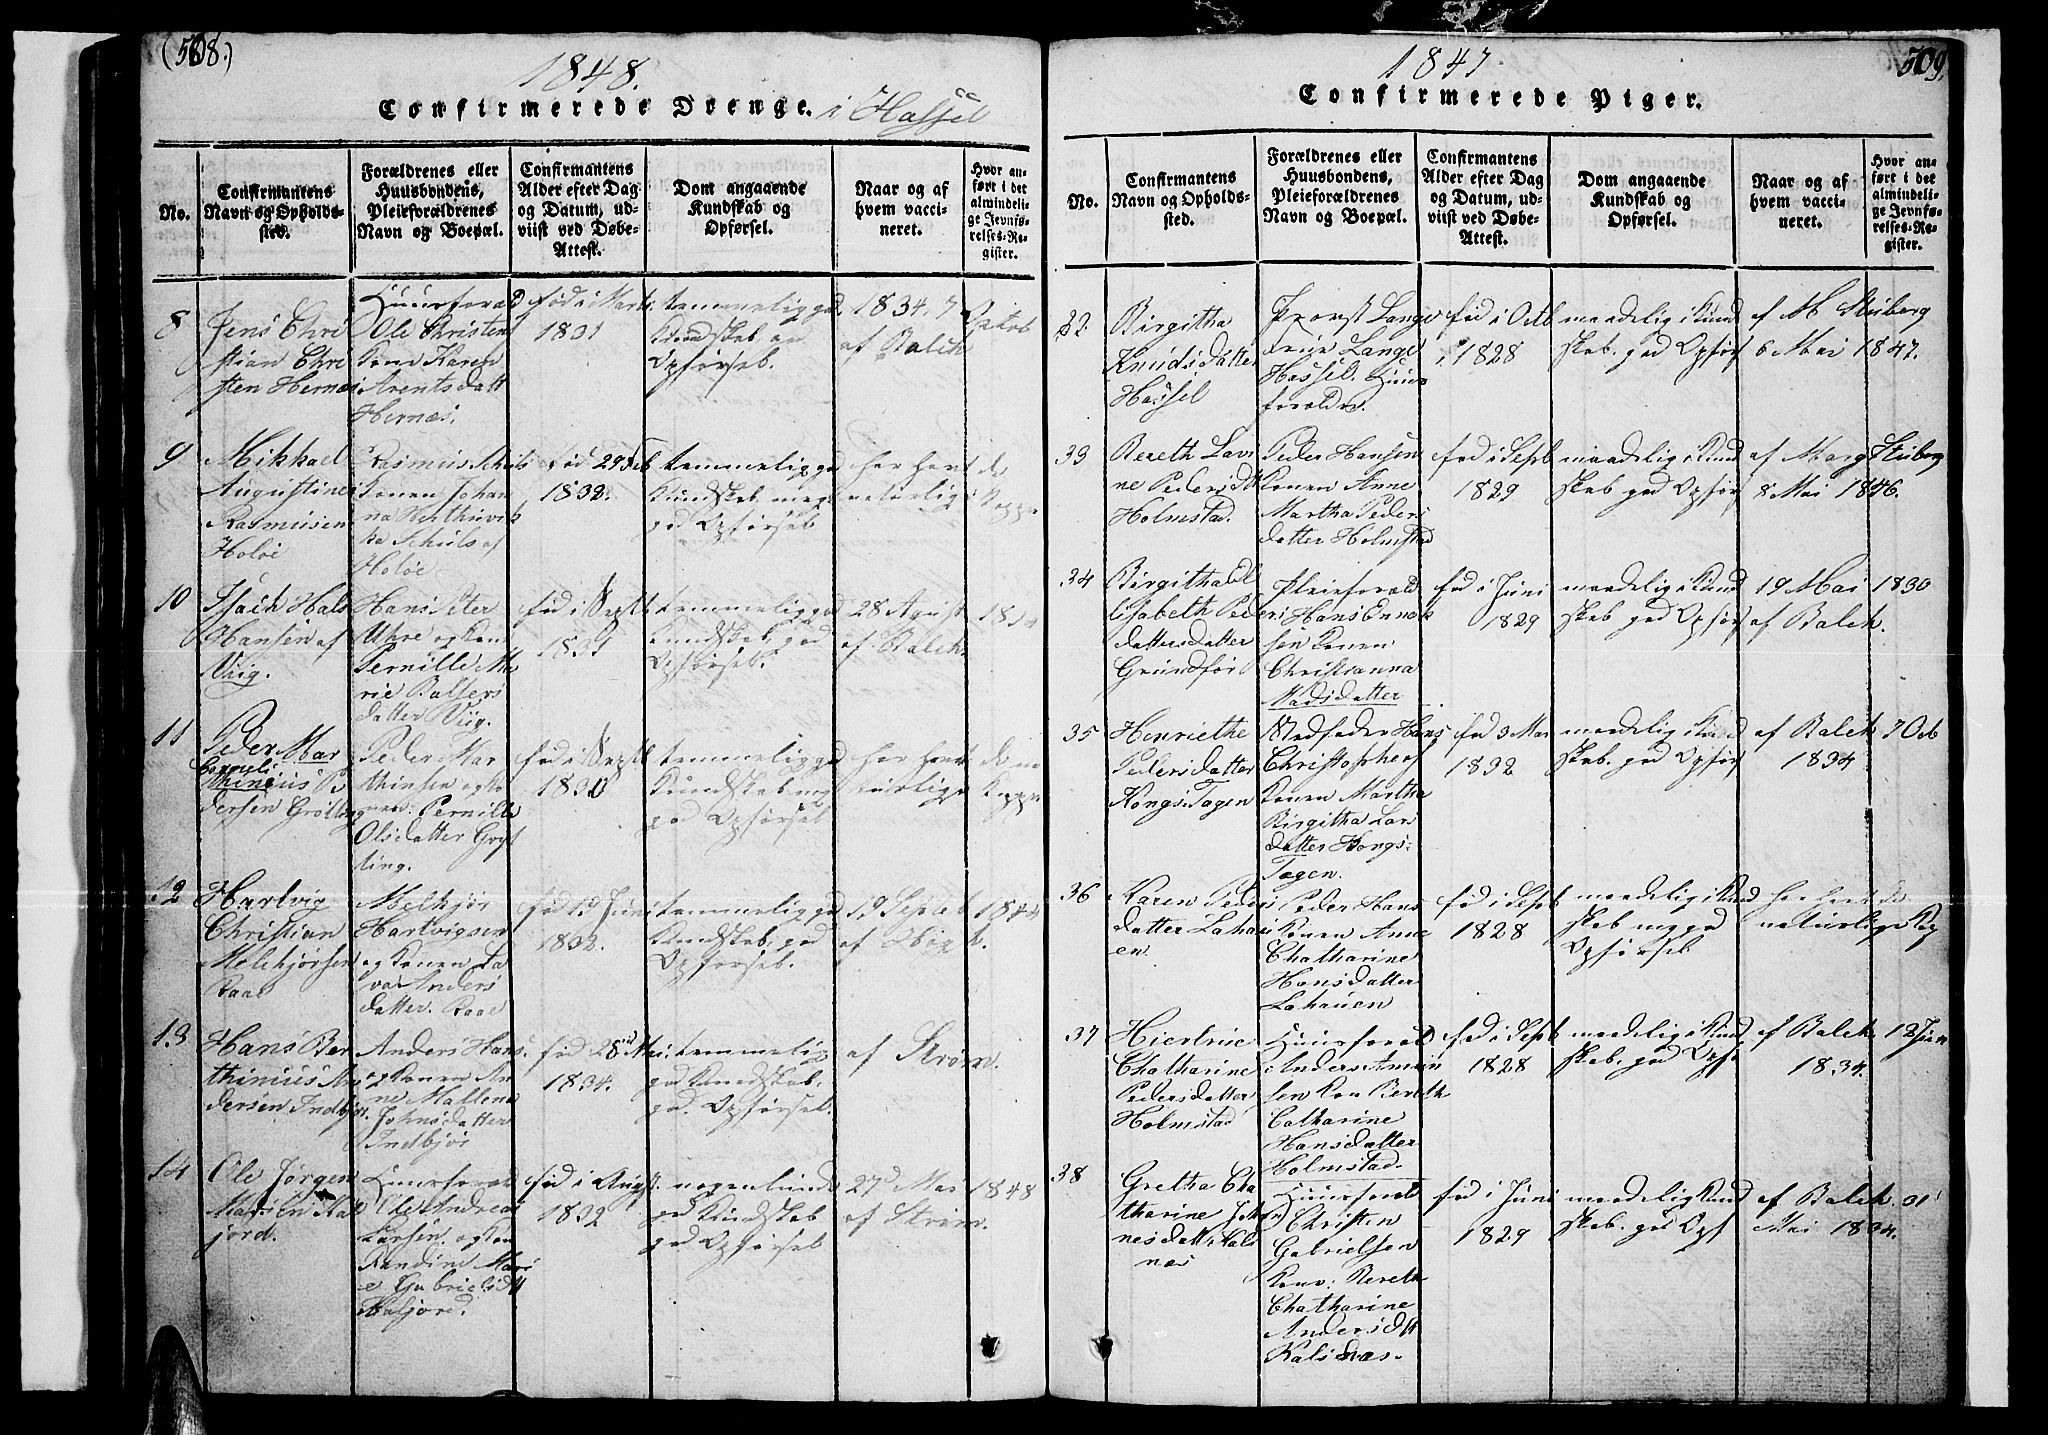 (508.)
1848.
Confirmerede Drenge. i Hassel
No.
Confirmantens
Navn og Opholds-
sted.
Forældrenes eller
Huusbondens,
Pleieforældrenes
Navn og Boepæl.
Confirmantens
Alder efter Dag
og Datum, ud-
viist ved Døbe-
Attest.
Dom angaaende
Kundskab og
Opførsel.
Naar og af
hvem vacci-
neret.
Hvor an-
ført i det
almindeli-
ge Jevnfø-
relses-Re-
gister.
8
Jens Chri
stian Chri
sten Hernæs
Huusforæld
Ole Christen
Kone Karen
Arentsdatt
Hernæs.
fød i Marts
1831
temmelig god
Kundskab og
Opførsel.
1834. 7 Octob
af Balck
9
Mikkael
Augustinus
Rasmusen
Holöe
Rasmus Schuls
Konen Johan
na
Schuls af
Holöe
fød 29 Feb
1832.
temmelig god
Kundskab meg
god Opførsel
har havt de
naturlige Kopper
10
Isach Hals
Hansen af
Viig.
Hans Peter
Uhre og Kone
Pernille Ma
rie Balsers
datter Viig.
fød i Septb
1831
temmelig god
Kundskab, god
Opførsel.
28 August 1834
af Balck
11
Peder Mar
Corneli
thinius Pe
dersen Grötting
Peder Mar
thinsen og Ko
nen Pernille
Olsdatter Grøt
ting.
fød i Septb
1830
temmelig god
Kundskab meg
god Opførsel
har havt de na
turlige Kopper
12
Hartvig
Christian
Melchjorsen
Raae
Melkjør
Hartvigsen
og Konen Sa
va Anders
datter. Raae
fød 13 Juni
1832.
temmelig god
Kundskab, god
Opførsel.
19 Septeb 1844
af
13
Hans Ber
thinius An
dersen Indbjor.
Anders Hans.
og Konen An
ne Mallena
Johnsdatter
Indbjör
fød 28 Mai
1834.
temmelig
god Kundskab.
god. Opførsel.
af Strøm.
14
Ole Jørgen
Matsen Kal
jord.
Huusforæld
Ole Andreas
Larsen og Kon
Randine Mari
e Gabrielsdtt
Kaljord.
fød i August.
1832
nogenlunde
god Kundskab
god Opførsel
27 Mai 1848
af Strøm.
1847.
509
Confirmerede Piger.
No.
Confirmantens
Navn og Opholds-
sted.
Forældrenes eller
Huusbondens,
Pleieforældrenes
Navn og Boepæl.
Confirmantens
Alder efter Dag
og Datum, ud-
viist ved Døbe-
Attest.
Dom angaaende
Kundskab og
Opførsel.
Naar og af
hvem vacci-
neret.
Hvor an-
ført i det
almindeli-
ge Jevnfø-
relses-Re-
gister.
32.
Birgitha
Knudsdatter
Hassel
Provst Lange
Frue Lange
Hassel. Huus
forældre.
fød i Octb
1828
maadelig i Kund
skab. god Opførs
af M Stuberg
6 Mai 1847.
33
Bereth Lavi
ne Pedersdtt
Holmstad.
Peder Hansen
Konen Anne
Martha Peders
datter Holmstad
fød i Septb
1829
maadelig i Kund
skab god Opførs
af Marg Stuberg
8 Mai 1846.
34
Birgitha El
lisabeth Peders
dattersdatter
Grundför
Pleieforæld
Hans Ennok
sen Konen
Christianna
Madsdatter
fød i Juni
1829
maadelig i Kund
skab god Opførs
19 Mai 1830
af Balck.
35
Henriethe
Pedersdatter
KongsTagen
Stedfader Hans
Christophers
Konen Martha
Birgitha Lars
datter Kongs:
Tagen.
fød 3 Mar
1832
maadelig i Kund
skab. god Opførs
af Balck 7 Octb
1834
36
Karen Peders
datter Lahau
en.
Peder Hans
Konen Anne
Chatharine
Hansdatter
Lahauen
fød i Septb
1828
maadelig i Kund
skab meg god
Opførsel
har havt de
naturlige Kop
37
Hiertrue
Chatharine
Pedersdatter
Holmstad
Huusforæld
Anders Amun
sen Kon Bereth
Catharine
Hansdatter
Holmstad.
fød i Septb
1828
maadelig i Kund
skab. god Opfø
af Balck. 12 Juni
1834.
38
Gretha Cha
tharine Johan
nesdatt Kals
næs
Huusforæld
Christen
Gabrielsen
Kone: Bereth
Chatharine
Andersdtt
Kalsnæs.
fød i Juni
1829
maadelig Kund
skab. god Opf
af Balck. 31
Mai 1834.